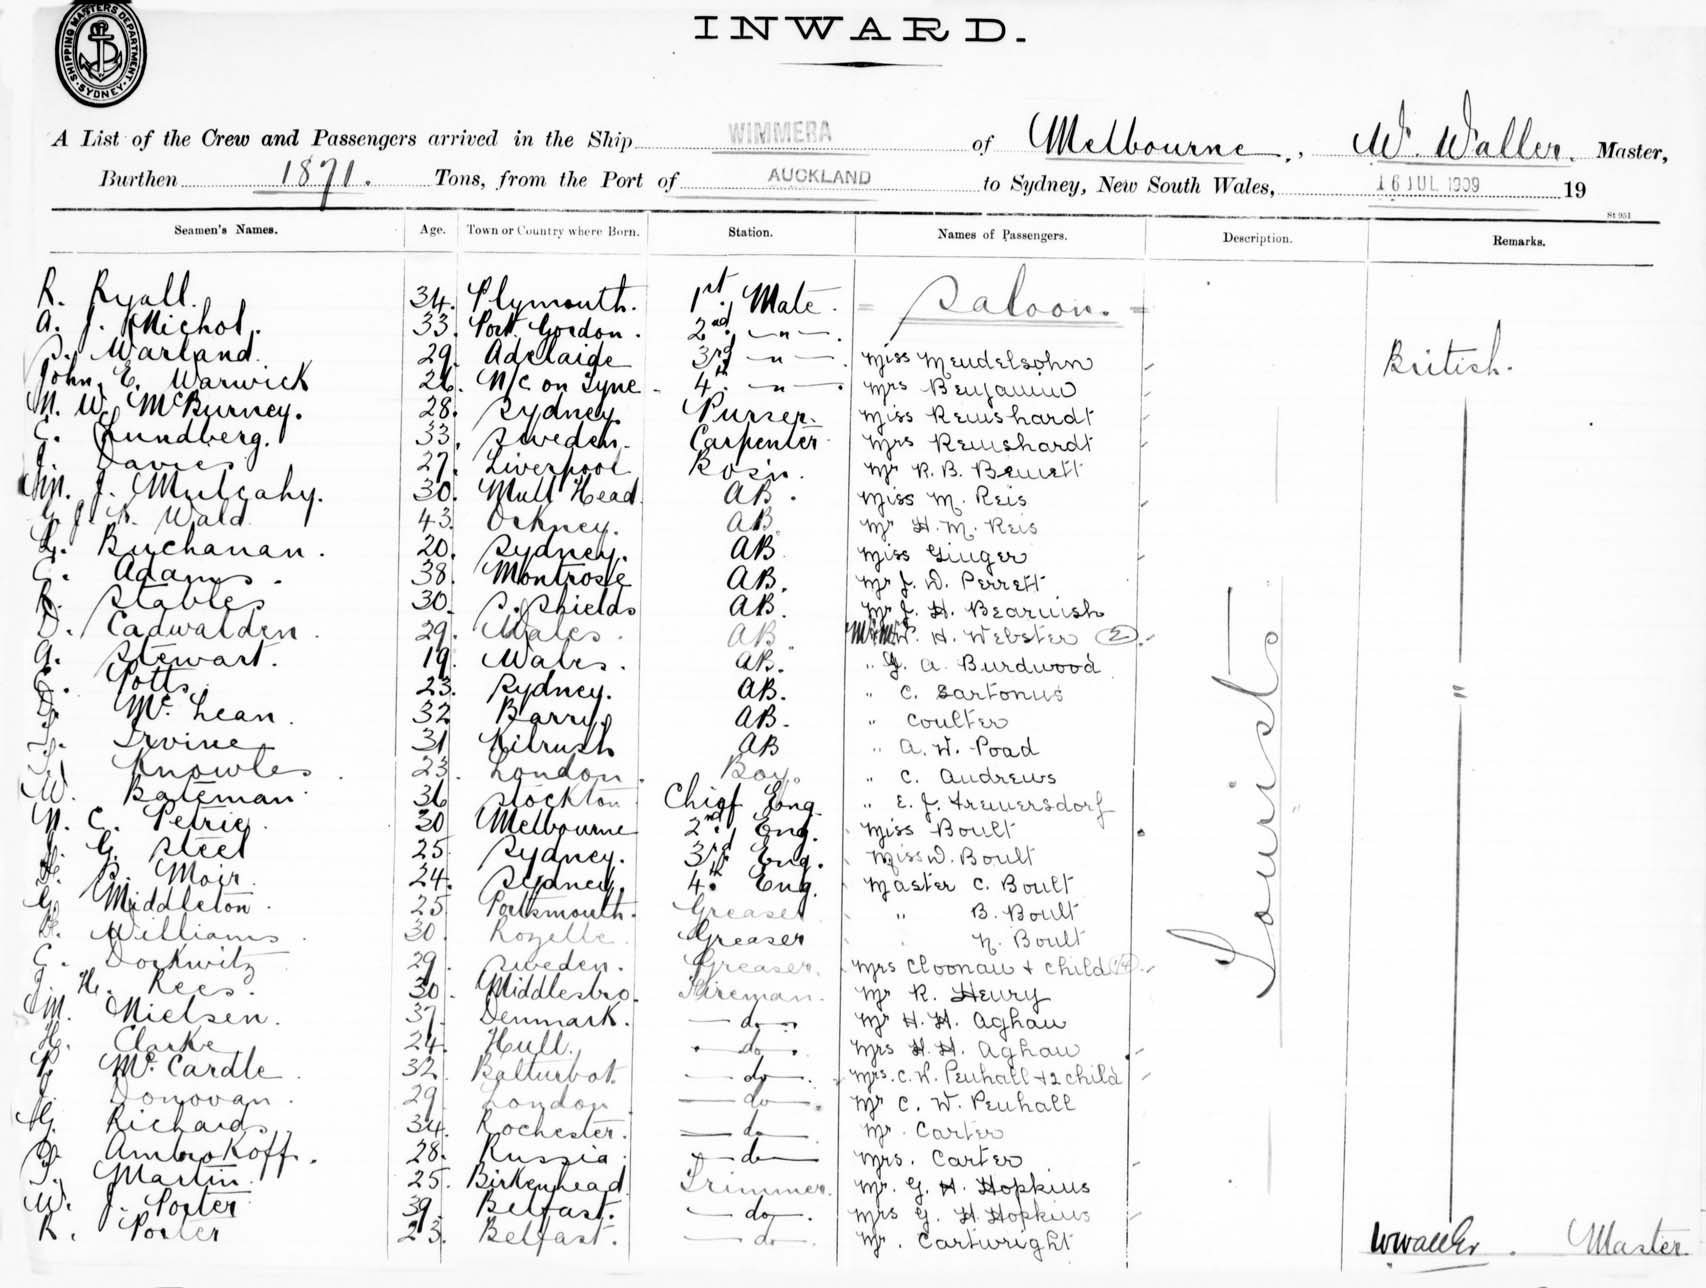 INWARD.
SHIPPING MASTERS DEPARTMENT. SYDNEY.
A List of the Crew and Passengers arrived in the Ship WIMMERA of Melbourne, W. Waller. Master,
Burthen 1871. Tons, from the Port of AUCKLAND to Sydney, New South Wales, 16 JUL 1909 19
St 951
Seamen's Names. Age. Town or Country where Born. Station. Names of Passengers. Description. Remarks.
R. Ryall. 34. Plymouth. 1st Mate. = Saloon. =
A. J. Nichol. 33. Port Gordon. 2nd —"—
Warland. 29. Adelaide 3rd —"— Miss Mendelsohn British.
John E. Warwick 26. N/C on Tyne 4th —"— Mrs Benjamin
N. W. McBurney. 28. Sydney Purser. Miss Remshardt
C. Lundberg. 33. Sweden. Carpenter Mrs Remshardt
J. Davies 27. Liverpool Bos'n. Mr R. B. Bennett
J. Mulcahy. 30. Mull Head AB. Miss M. Reis
Wald 43. Orkney. AB. Mr H. M. Reis
Buchanan. 20. Sydney. AB Miss Ginger
C. Adams. 38. Montrose AB. Mr J. D. Perrett
R. Stables 30. S. Shields AB. Mr J. H. Bearnish
D. Cadwalden. 29. Wales. AB W. H. Webster (2)
A. Stewart. 19. Wales. AB. " G. A. Burdwood
Potts 23. Sydney. AB. " C. Sartonus
D. McLean. 32 Barry. AB. " Coulter
Irvine 31 Kilrush AB " A. W. Poad
Knowles. 23. London. Boy. " C. Andrews
W. Bateman 36 Stockton Chief Eng. " E. J.
N. C. Petrie. 30 Melbourne 2nd Eng. Miss Boult
G. Steel 25 Sydney. 3rd Eng. Miss D. Boult
Moir. 24. Sydney. 4th Eng. Master C. Boult
G. Middleton. 25 Portsmouth. Greaser " B. Boult
Williams. 30. Rozelle. Greaser " N. Boult
C. Dorkwitz 29. Sweden. Greaser. Mrs Cloonan & child
H. Rees. 30. Middlesbro. Fireman. Mr R. Henry
M. Nielsen. 37. Denmark. —do— Mr H. H. Aghan
H. Clarke 24. Hull. —do— Mrs H. H. Aghan
P. McCardle. 32. Balturbot. —do— Mrs. C. W. Penhall + 2 child
J. Donovan. 29. London —do— Mr C. W. Penhall
Richards 34. Rochester. —do— Mr. Carter
Ambrokoff. 28. Russia. —do— Mrs. Carter
Martin. 25. Birkenhead Trimmer. Mr. G. H. Hopkins
W. J. Porter 39. Belfast. —do— Mrs G. H. Hopkins
R. Porter 23. Belfast. —do— Mr. Cartwright
Tourists
"
WWaller. Master